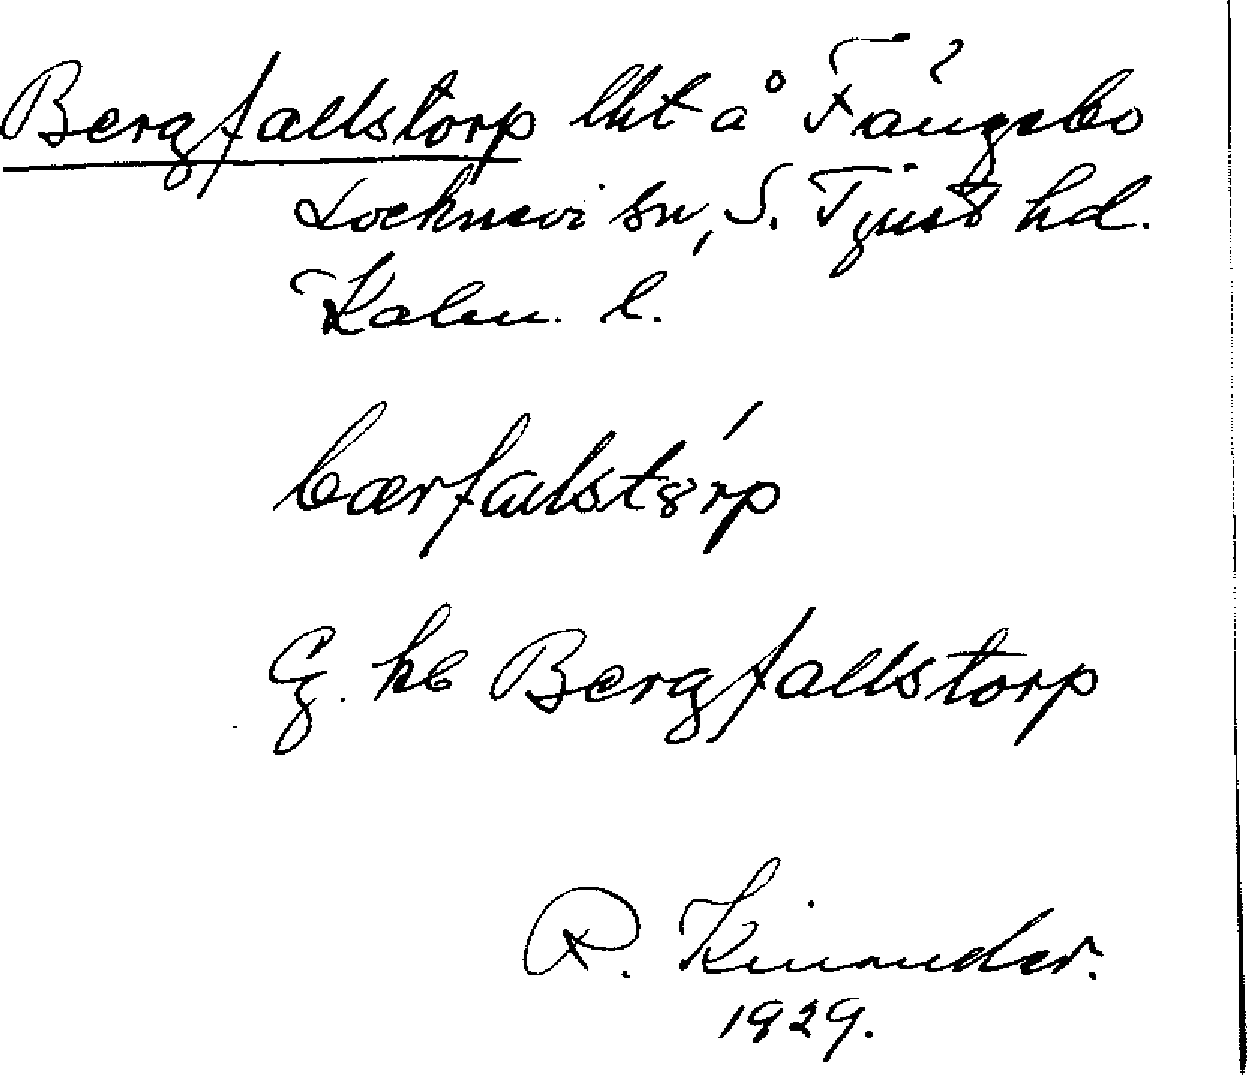 Bergfallstorp lht å Fångsbo
Locknevi sn, S. Tjust hd.
Kalm. l.
bærfalstórp
Eg. ke Bergfallstorp
R. Kinnander.
1929.